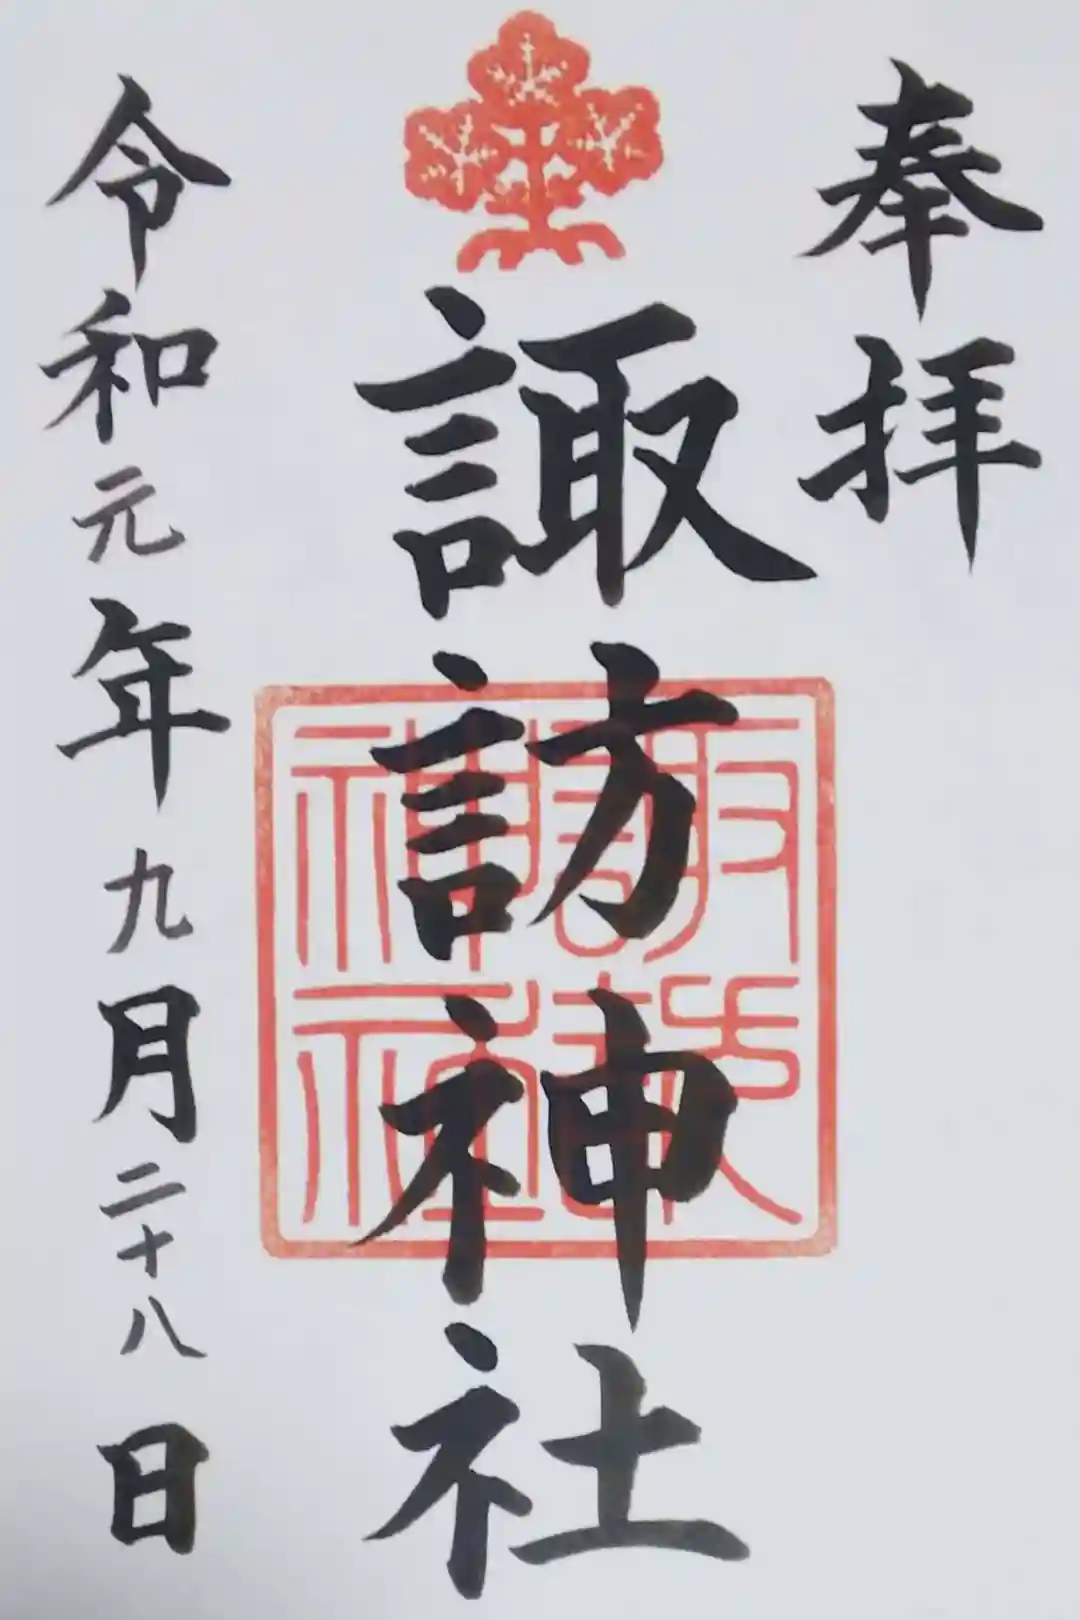 奉拝
諏訪神社
諏訪神社
令和元年九月二十八日